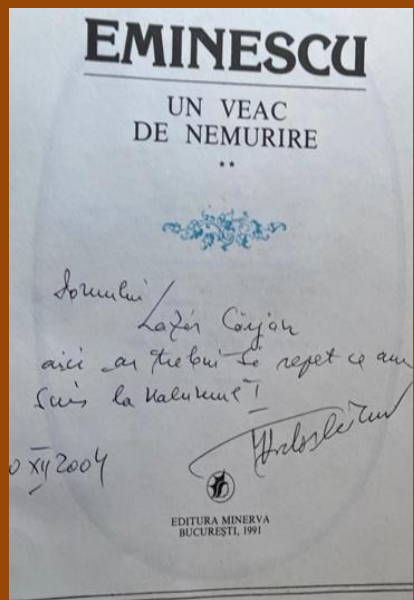 EMINESCU
UN VEAC
DE NEMURIRE
**
Domnului
Lazăr Cârjan
aici ar trebui să repet ce am
scris la volumul I
XII 2004
EDITURA MINERVA
BUCUREȘTI, 1991